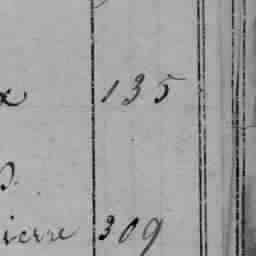 x 135
ierre 309